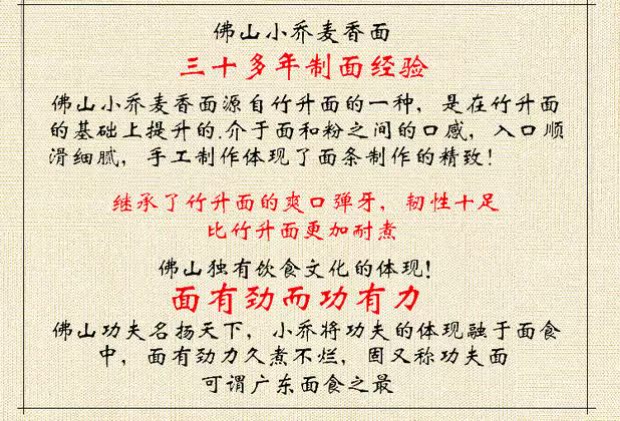 佛山小乔麦香面
三十多年制面经验
佛山小乔麦香面源自竹升面的一种，是在竹升面
的基础上提升的.介于面和粉之间的口感，入口顺
滑细腻，手工制作体现了面条制作的精致！
继承了竹升面的爽口弹牙，韧性十足
比竹升面更加耐煮
佛山独有饮食文化的体现！
面有劲而功有力
佛山功夫名扬天下，小乔将功夫的体现融于面食
中，面有劲力久煮不烂，固又称功夫面
可谓广东面食之最